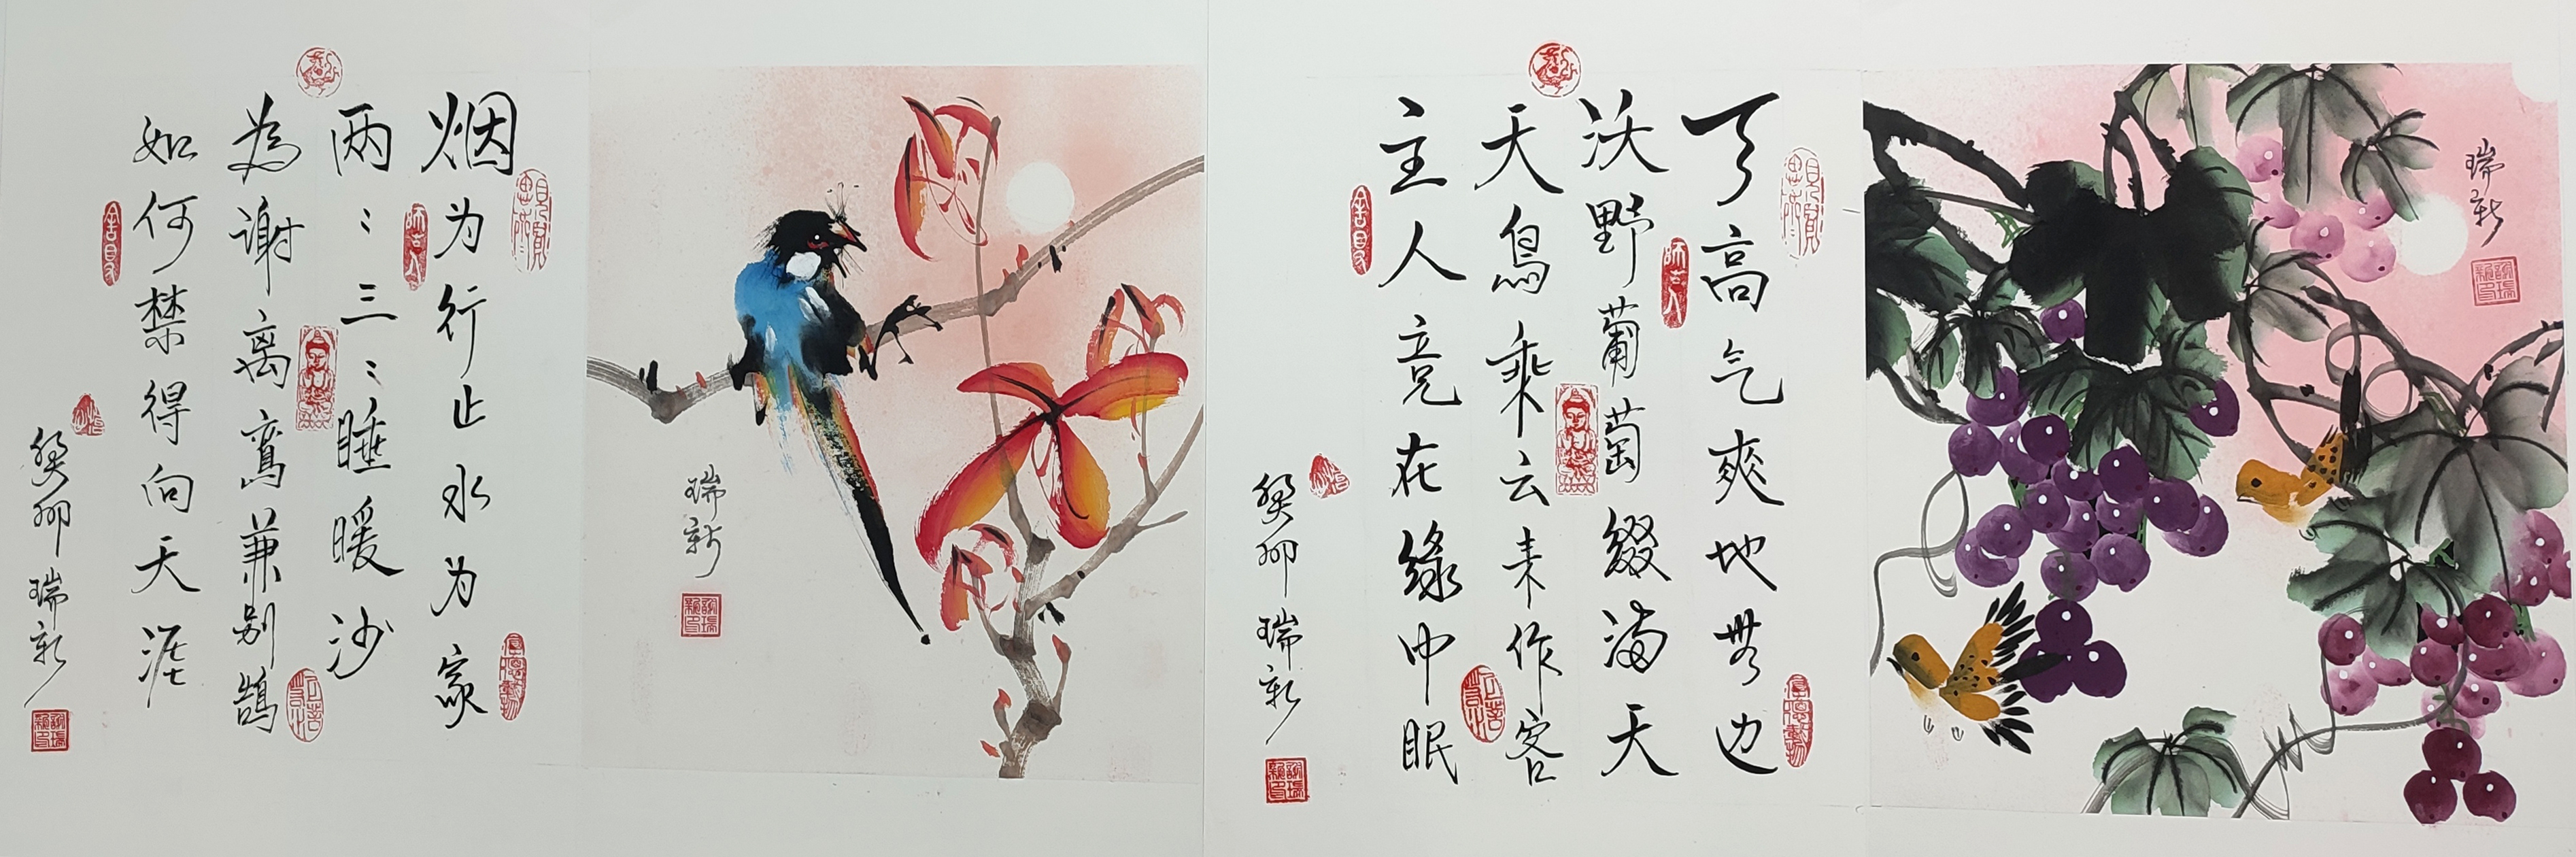 瑞新
天高气爽地無边
沃野葡萄缀满天
天鳥乘云来作客
主人竟在緣中眠
癸卯 瑞新
瑞新
烟为行止水为家
两々三々睡暖沙
為谢离鸾兼别鹄
如何禁得向天涯
癸卯 瑞新